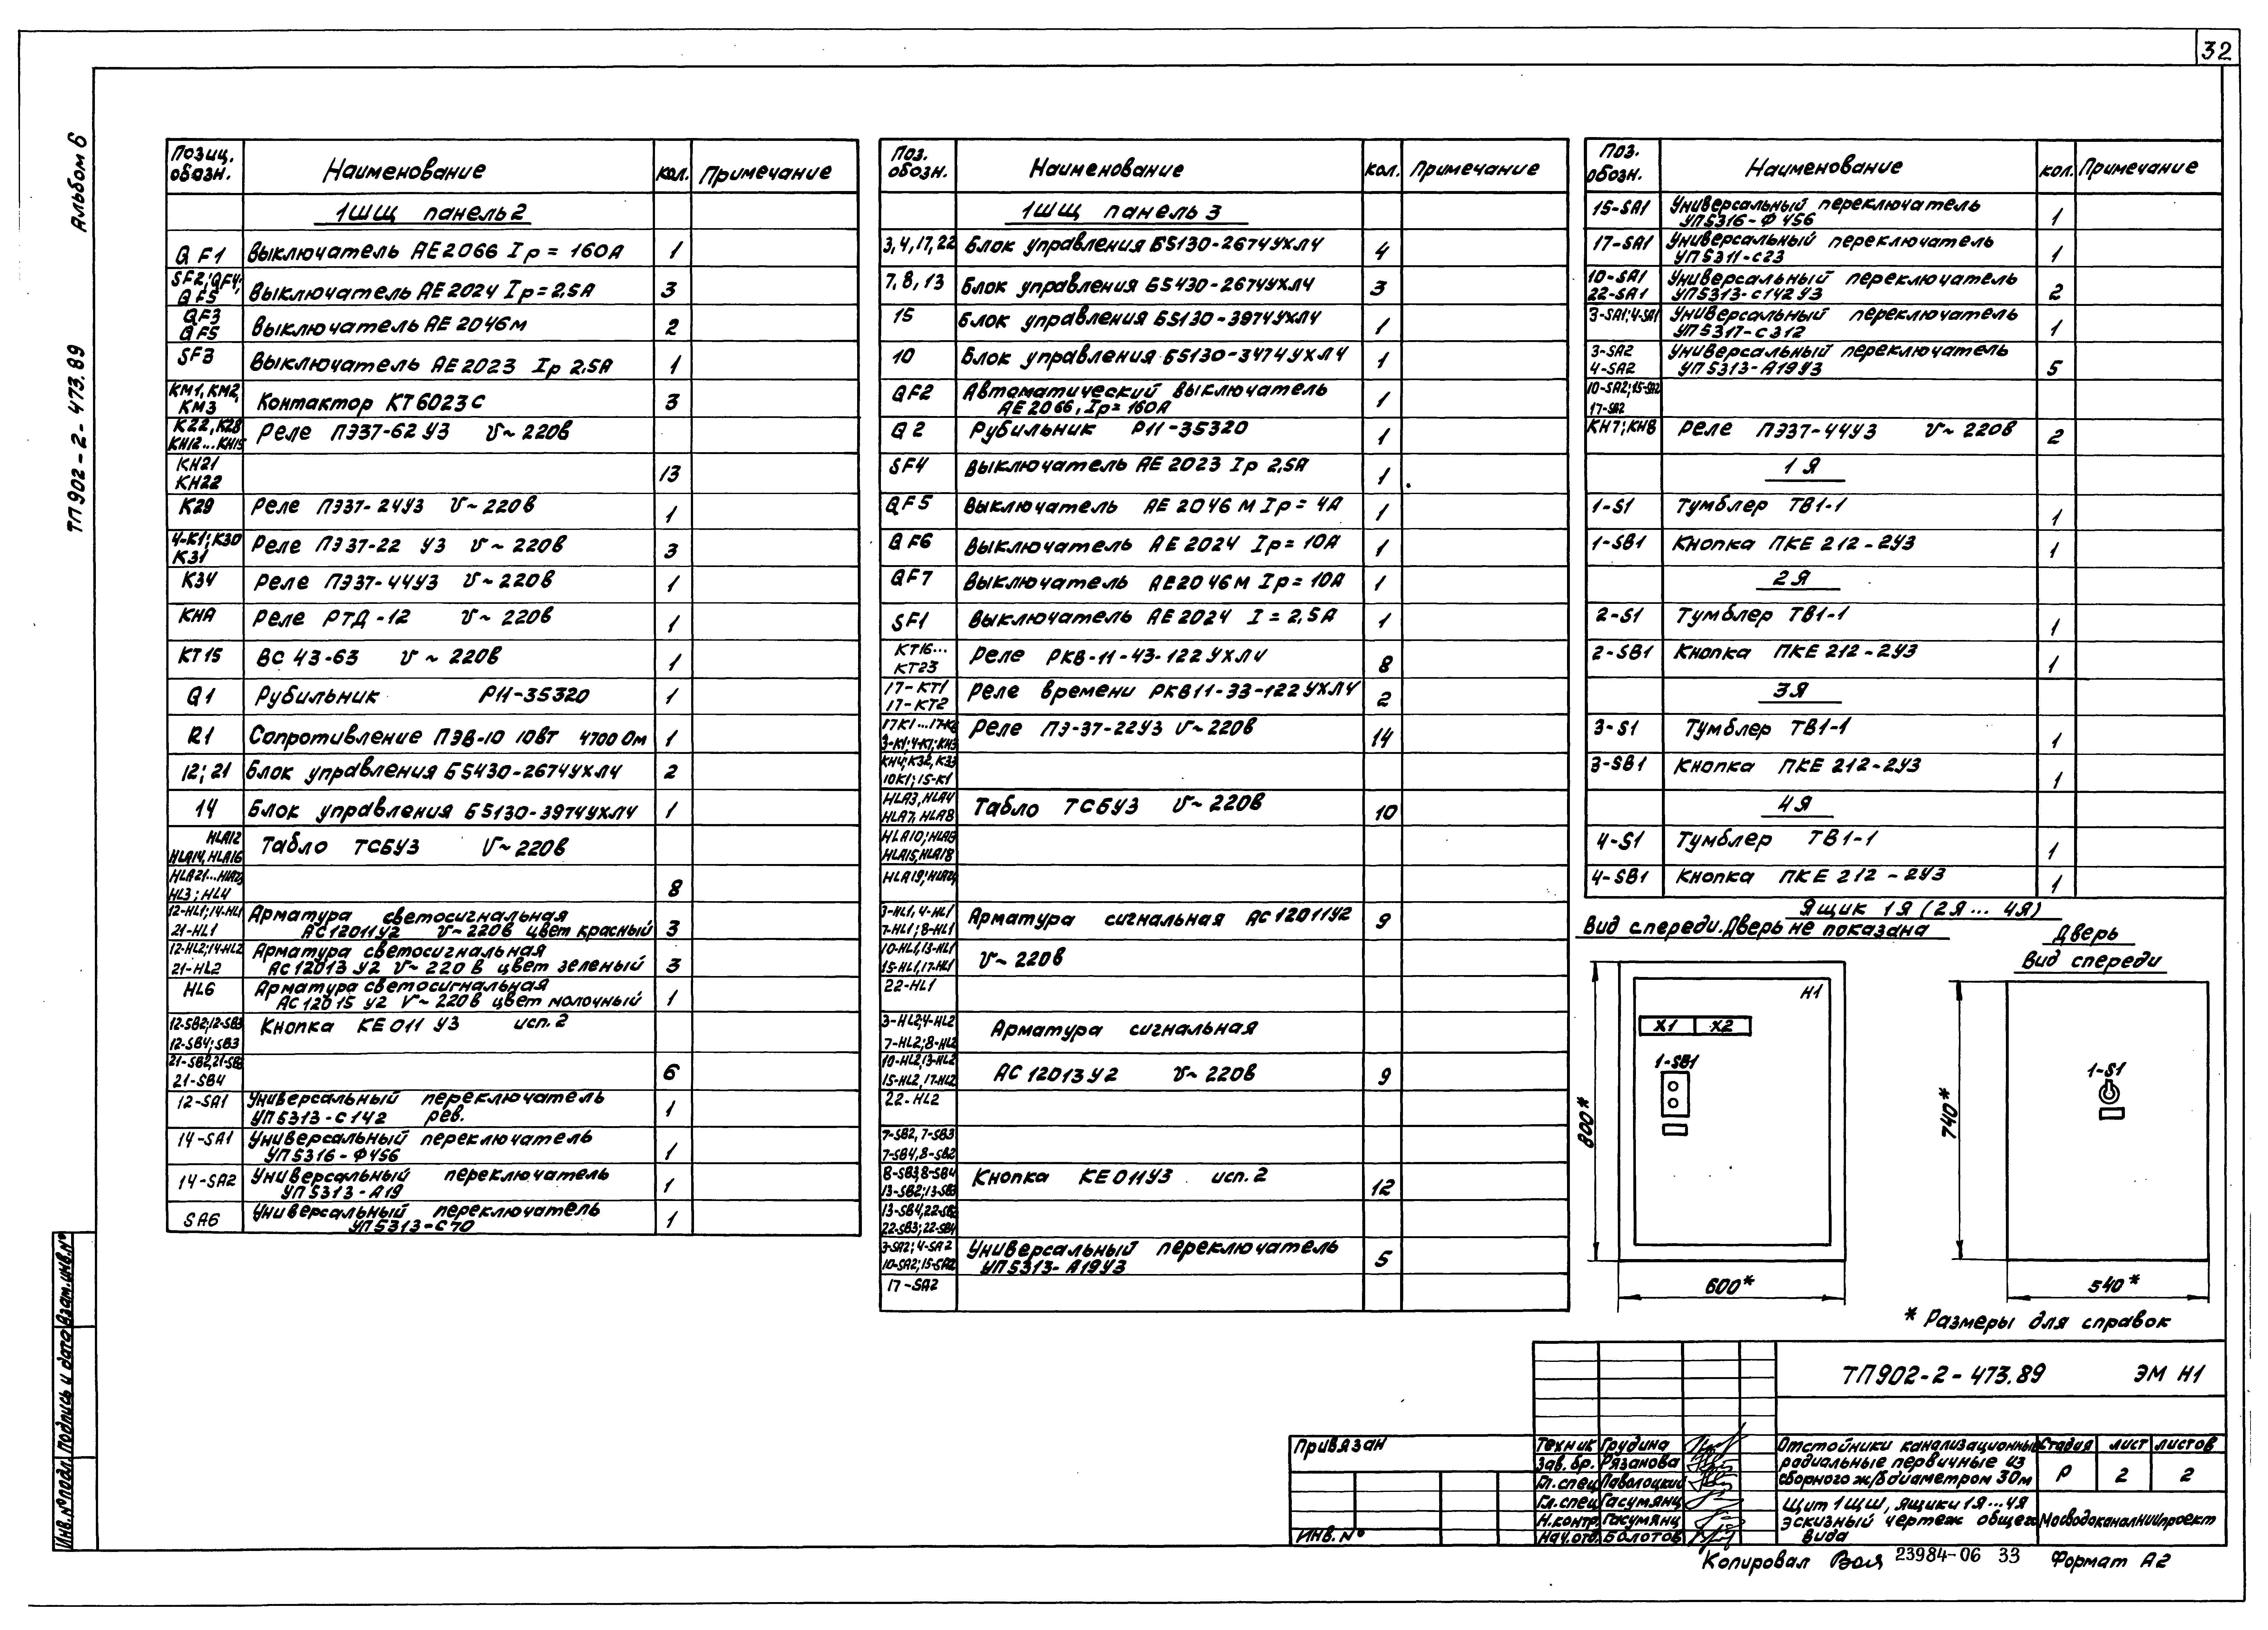 32
Альбом 6
ТП902-2-473.89
Позиц. обозн. Наименование кол. Примечание
1ШЩ панель 2
QF1 Выключатель АЕ2066 Iр = 160А 1
SF2; QF4; QF5 Выключатель АЕ2024 Iр = 2,5А 3
QF3 QF5 Выключатель АЕ 2046м 2
SF3 Выключатель АЕ2023 Iр 2,5А 1
КМ1, КМ2, КМ3 Контактор КТ6023С 3
К22, К28 КН12...КН15 Реле ПЭ37-62 У3 U~220В
КН21 КН22 13
К29 Реле ПЭ37-24У3 U~220В 1
4-К1; К30 К31 Реле ПЭ37-22 У3 U~220В 3
К34 Реле ПЭ37-44У3 U~220В 1
КНА Реле РТД-12 U~220В 1
КТ15 ВС 43-63 U~220В 1
Q1 Рубильник Р11-35320 1
R1 Сопротивление ПЭВ-10 10Вт 4700 Ом 1
12; 21 Блок управления Б5430-2674УХЛ4 2
14 Блок управления Б5130-3974УХЛ4 1
HLA12
HLA14, HLA16 Табло ТСБУ3 U~220В
HLA21...
HL3; HL4 8
12-HL1; 14-HL1 21-HL1 Арматура светосигнальная
АС12011У2 U~220В цвет красный 3
12-HL2; 14-HL2 21-HL2 Арматура светосигнальная
АС12013 У2 U~220В цвет зеленый 3
HL6 Арматура светосигнальная
АС12015 У2 U~220В цвет молочный 1
12-SB2; 12-SB3 12-SB4; SB3 Кнопка КЕ 011 У3 исп. 2
21-SB2, 21-SB3 21-SB4 6
12-SA1 Универсальный переключатель
УП5313-С142 рев. 1
14-SA1 Универсальный переключатель
УП5316-Ф456 1
14-SA2 Универсальный переключатель
УП5313-А19 1
SA6 Универсальный переключатель
УП5313-С70 1
Поз. обозн. Наименование кол. Примечание
1ШЩ панель 3
3, 4, 17, 22 Блок управления Б5130-2674УХЛ4 4
7, 8, 13 Блок управления Б5430-2674УХЛ4 3
15 Блок управления Б5130-3974УХЛ4 1
10 Блок управления Б5130-3474УХЛ4 1
QF2 Автоматический выключатель
АЕ2066, Iр = 160А 1
Q2 Рубильник Р11-35320 1
SF4 Выключатель АЕ 2023 Iр 2,5А 1
QF5 Выключатель АЕ 2046М Iр = 4А 1
QF6 Выключатель АЕ 2024 Iр = 10А 1
QF7 Выключатель АЕ2046М Iр = 10А 1
SF1 Выключатель АЕ 2024 I = 2,5А 1
КТ16... КТ23 Реле РКВ-11-43-122УХЛ4 8
17-КТ1 17-КТ2 Реле времени РКВ11-33-122УХЛ4 2
17К1...17-К6 3-К1; 4-К1; КН3 Реле ПЭ-37-22У3 U~220В 14
КН4; К32, К33 10К1; 15-К1
HLA3, HLA4 HLA7, HLA8 Табло ТСБУ3 U~220В 10
HLA10; HLA13 HLA15, HLA18
HLA19; HLA24
3-HL1, 4-HL1 7-HL1; 8-HL1 Арматура сигнальная АС12011У2 9
10-HL1, 13-HL1 15-HL1, 17-HL1 U~220В
22-HL1
3-HL2; 4-HL2 7-HL2; 8-HL2 Арматура сигнальная
10-HL2, 13-HL2 15-HL2, 17-HL2 АС 12013У2 U~220В 9
22-HL2
7-SB2, 7-SB3 7-SB4, 8-SB2
8-SB3, 8-SB4 13-SB2; 13-SB3 Кнопка КЕ 011У3 исп. 2 12
13-SB4, 22-SB2 22-SB3; 22-SB4
3-SA2; 4-SA2 10-SA2; 15-SA2 Универсальный переключатель
УП5313-А19У3 5
17-SA2
Поз. обозн. Наименование кол. Примечание
15-SA1 Универсальный переключатель
УП5316-Ф456 1
17-SA1 Универсальный переключатель
УП5311-С23 1
10-SA1 22-SA1 Универсальный переключатель
УП5313-С142У3 2
3-SA1; 4-SA1 Универсальный переключатель
УП5317-С312 1
3-SA2 4-SA2 Универсальный переключатель
УП5313-А19У3 5
10-SA2; 15-SA2 17-SA2
КН7; КН8 Реле ПЭ37-44У3 U~220В 2
1Я
1-S1 Тумблер ТВ1-1 1
1-SB1 Кнопка ПКЕ 212-2У3 1
2Я
2-S1 Тумблер ТВ1-1 1
2-SB1 Кнопка ПКЕ 212-2У3 1
3Я
3-S1 Тумблер ТВ1-1 1
3-SB1 Кнопка ПКЕ 212-2У3 1
4Я
4-S1 Тумблер ТВ1-1 1
4-SB1 Кнопка ПКЕ 212-2У3 1
Ящик 1Я (2Я... 4Я)
Вид спереди. Дверь не показана
Дверь
Вид спереди
Н1
Х1 Х2
1-SB1
800*
600*
1-S1
740*
540*
* Размеры для справок
ТП902-2-473.89 ЭМ Н1
Привязан
ИНВ. №
Техник Грудина
Зав. бр. Рязанова
Гл. спец Паволоцкий
Гл. спец Гасумянц
Н. контр. Гасумянц
Нач. отд. Болотов
Отстойники канализационные
радиальные первичные из
сборного ж/б диаметром 30м
Стадия лист листов
Р 2 2
Щит 1ЩШ, ящики 1Я...4Я
эскизный чертеж общего
вида
МосводоканалНИИпроект
Копировал 23984-06 33 Формат А2
Инв. № подл. Подпись и дата Взам. инв. №